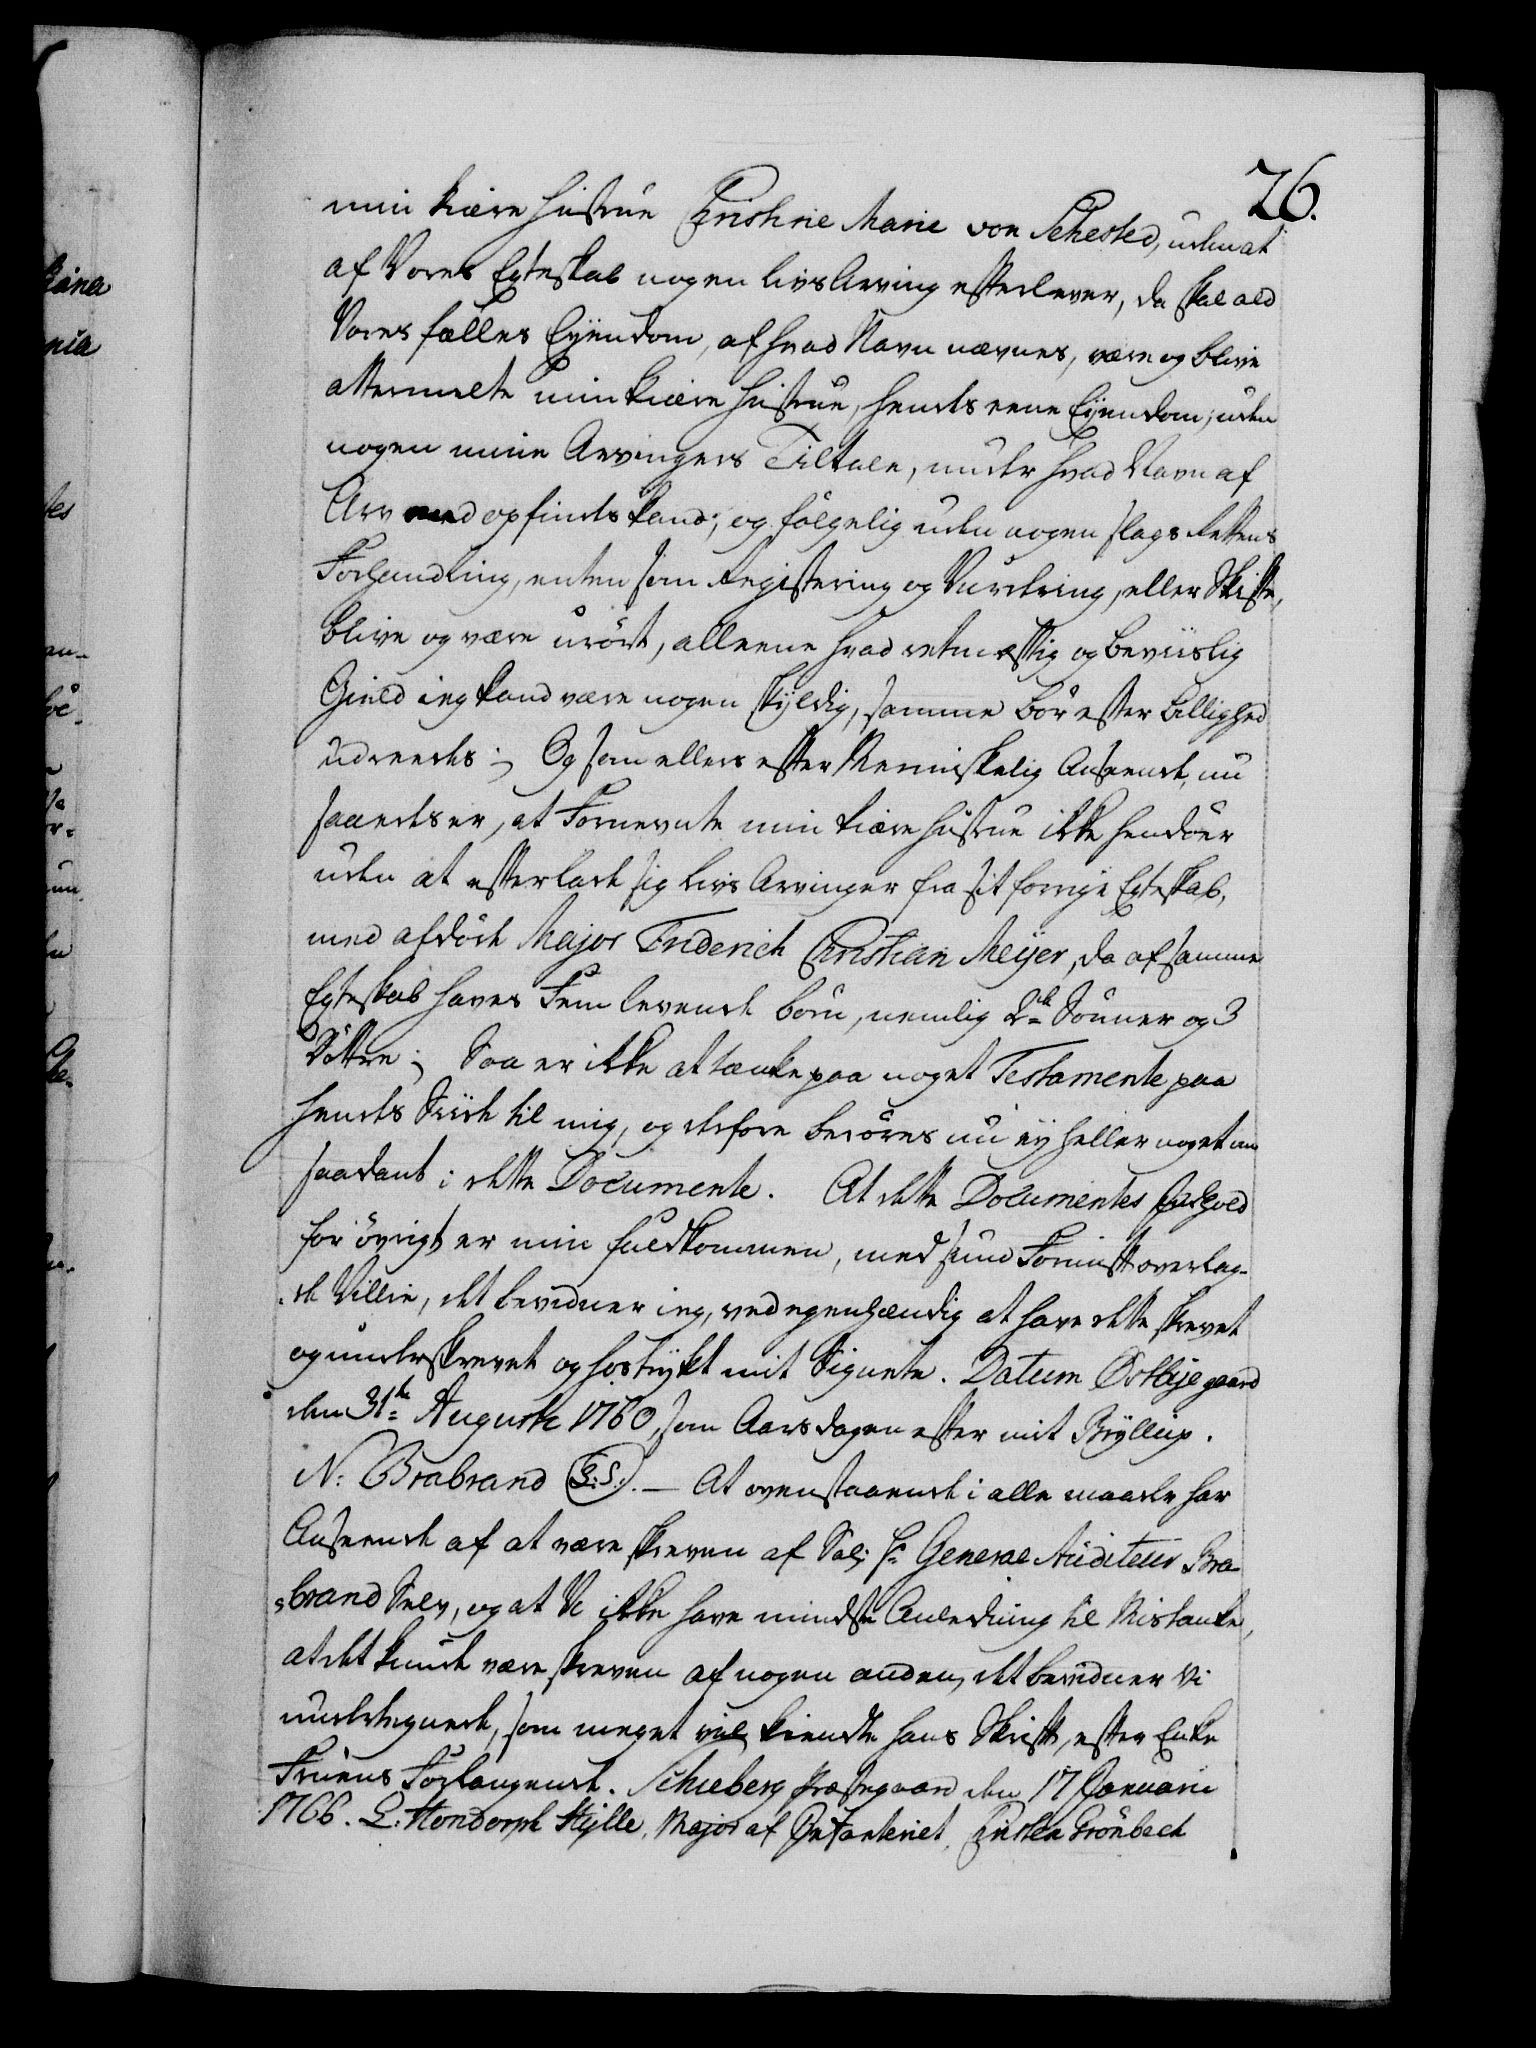 26.
min kiære Hustrue Christine Marie von Sehested, uden at
af Vores Egteskab nogen livs Arving efterlever, da skal ald
Vores fælles Eyendom, af hvad Navn nævnes, være og blive
ommelte min kiære Hustrue, hendes eene Eyendom, uden
nogen mine Arvingers Tiltale, under hvad Navn af
Arv med opfindes kand; og følgelig uden nogen slags Rettens
Forhandling, enten som Registering og Vurdering, eller Skifte,
blive og være urørt, alleene hvad retmæssig og beviislig
Gield ieg kand være nogen skyldig, samme bør efter billighed
udreedes; Og som ellers efter Menniskelig Anseende, nu
saaledes er, at Fornevnte min kiære Hustrue ikke hendöer
uden at efterlade sig livs Arvinger fra sit forrige Egteskab,
med afdöde Major Friderich Christian Meijer, da af samme
Egteskab haves Fem levende börn, nemlig 2de Sönner og 3
Döttre; Saa er ikke at tænke paa noget Testamente paa
hendes Siide til mig, og derfore beröres nu ey heller noget om
saadant i dette Documente. At dette Documentes Indhold
for övrigt er min fuldkommen, med sund Fornuft overlag-
de Villie, det bevidner ieg, ved egenhændig at have dette skrevet
og underskrevet og hostrykt mit Signete. Datum Østbijegaard
den 31te Augusti 1760, som Aarsdagen efter mit Bryllup.
N: Brabrand (L.S.). — At ovenstaaende i alle maader har
Anseende af at være skreven af Sal: Hr General Auditeur Bra-
brand Selv, og at Vi ikke have mindste Anledning til Mistanke,
at det kunde være skreven af nogen anden, det bevidner Vi
undertegnede, som meget vel kiendte hans Skrift, efter Enke
Fruens Forlangende. Schieberg Præstegaard den 17 Januarii
1766. L: Hondorph Hylle, Major af Infanteriet, Christen Grönbech